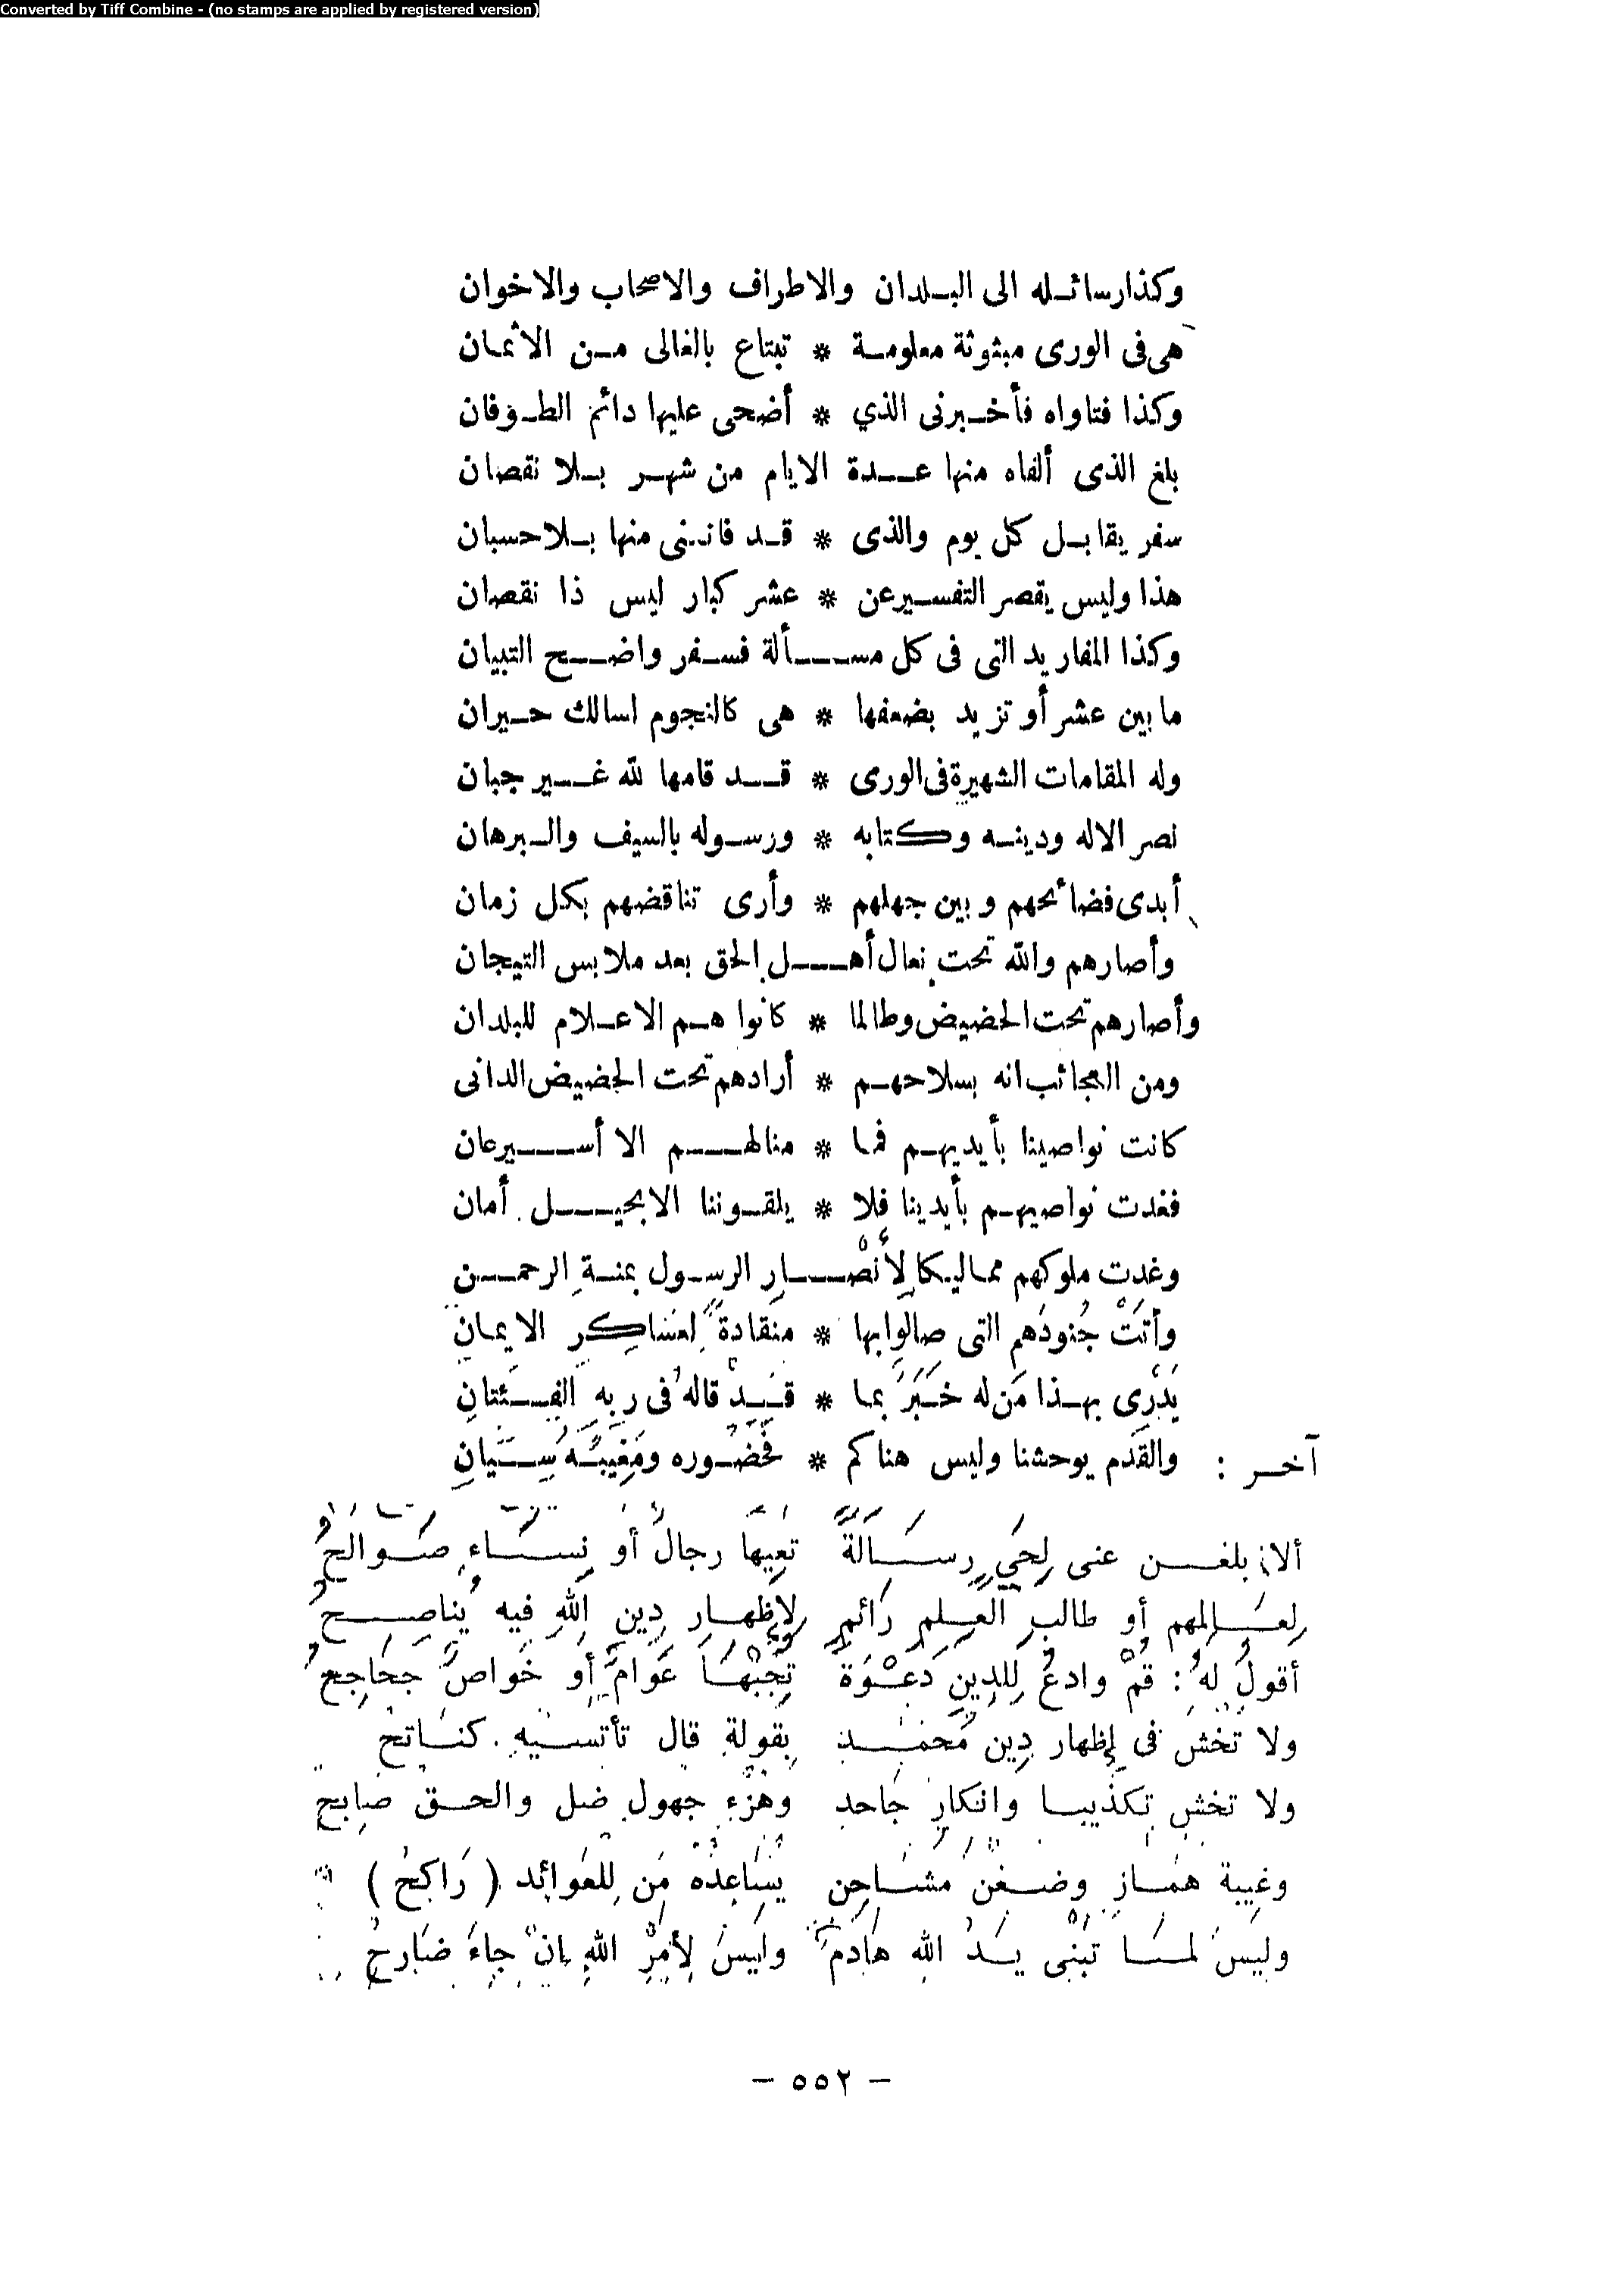 Converted by Tiff Combine - (no stamps are applied by registered version)
وكذا رسائله الى البلدان والاطراف والاصحاب والاخوان
هي في الورى مبثوثة معلومة * تبتاع بالغالى من الاثمان
وكذا فتاواه فأخبرنى الذي * أضحى عليها دائم الطوفان
بلغ الذى ألفاه منها عدة الايام من شهر بلا نقصان
سفر يقابل كل يوم والذى * قد فاتنى منها بلا حسبان
هذا وليس يقصر التفسير عن * عشر كبار ليس ذا نقصان
وكذا المفاريد التى فى كل مسألة فسفر واضح التبيان
ما بين عشر أو تزيد بضعفها * هى كالنجوم لسالك حيران
وله المقامات الشهيرة فى الورى * قد قامها لله غير جبان
نصر الاله ودينه وكتابه * ورسوله بالسيف والبرهان
أبدى فضائحهم وبين جهلهم * وأرى تناقضهم بكل زمان
وأصارهم والله تحت نعال أهل الحق بعد ملابس التيجان
وأصارهم تحت الحضيض وطالما * كانوا هم الاعلام للبلدان
ومن العجائب انه بسلاحهم * أرادهم تحت الحضيض الدانى
كانت نواصينا بأيديهم فما * منا لهم الا أسير عان
فغدت نواصيهم بأيدينا فلا * يلقوننا الا بحيل أمان
وغدت ملوكهم مماليكا لِأَنْصَارِ الرسول بمنةِ الرحمن
وأتَتْ جُنودُهم التى صالوا بها * منقادةً لعَساكِر الايمان
يَدْرِى بهذا مَن له خَبَرٌ بما * قَدْ قاله فى ربه الفِئَتان
والقَدم يوحشنا وليس هناكم * فحُضُوره ومَغِيبُهُ سِيَّانِ
آخر :
ألا بلغن عنى لِحَيٍ رسَالَةً تعِيهَا رجالٌ أو نِسَاءٍ صَوالحُ
لِعَالِمهم أو طالبِ العِلمِ رَائمٍ لإظهارِ دِينِ اللهِ فيه يُناصِحُ
أقولُ لهُ: قمْ وادعُ لِلدِينِ دَعْوَةً تُجِبْهَا عَوامٌ أو خَواصٌ جحَاجِحُ
ولا تخشَ فى إظهار دِين مُحَمَّدٍ بِقولةِ قال تأتسيْهِ كنَاتحُ
ولا تخشِ تكذيبا وانكارَ جَاحد وهُزْءِ جهولِ ضل والحق صابح
وغِيبة همَاز وضغْن مشاحِن يسَاعِدُه مَن لِلعَوائِد ( رَاكِحُ )
وليَسَ لمَا تبْنى يَدُ الله هَادمٌ وليسَ لِأمْرِ اللهِ إنْ جاءَ ضَارحُ
- ٥٥٢ -